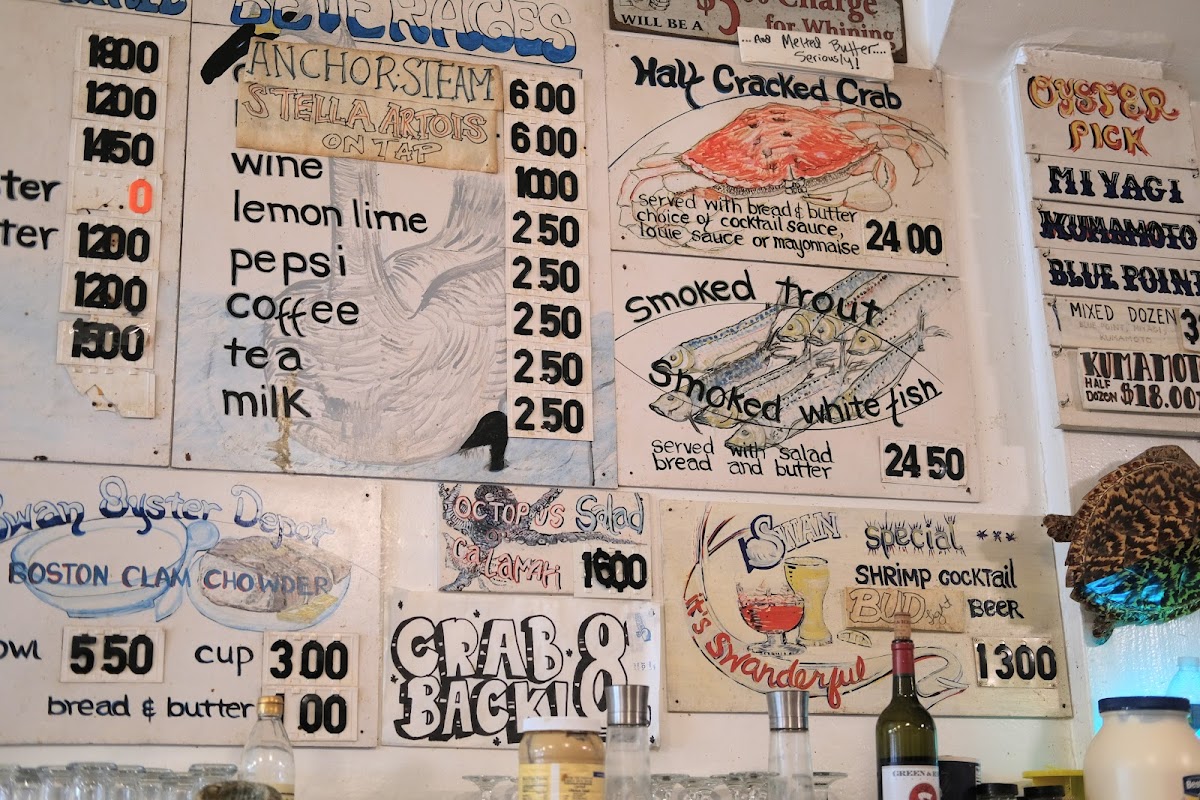 1800
1200
1450
ster 0
ster 1200
1200
1500
BEVERAGES
ANCHOR·STEAM 6 00
STELLA ARTOIS 6 00
ON TAP
wine 1000
lemon lime 2 50
pepsi 2 50
coffee 2 50
tea 2 50
milk 2 50
WILL BE A $5 00 Charge
for Whining
...And Melted Butter...
Seriously!
Half Cracked Crab
served with bread & butter
choice of cocktail sauce,
louie sauce or mayonnaise
24 00
Smoked trout
Smoked white fish
served with salad
bread and butter
24 50
OYSTER
PICK
MIYAGI
KUMAMOTO
BLUE POINT
MIXED DOZEN
BLUE POINT, MIYAGI,
KUMAMOTO
KUMAMOTO
HALF
DOZEN $18.00
Swan Oyster Depot
BOSTON CLAM CHOWDER
owl 5 50 cup 3 00
bread & butter 00
OCTOPUS Salad
CALAMARI 1600
CRAB
BACK 8
SWAN Special ***
SHRIMP COCKTAIL
BUD BEER
it's Swanderful
1300
GREEN &